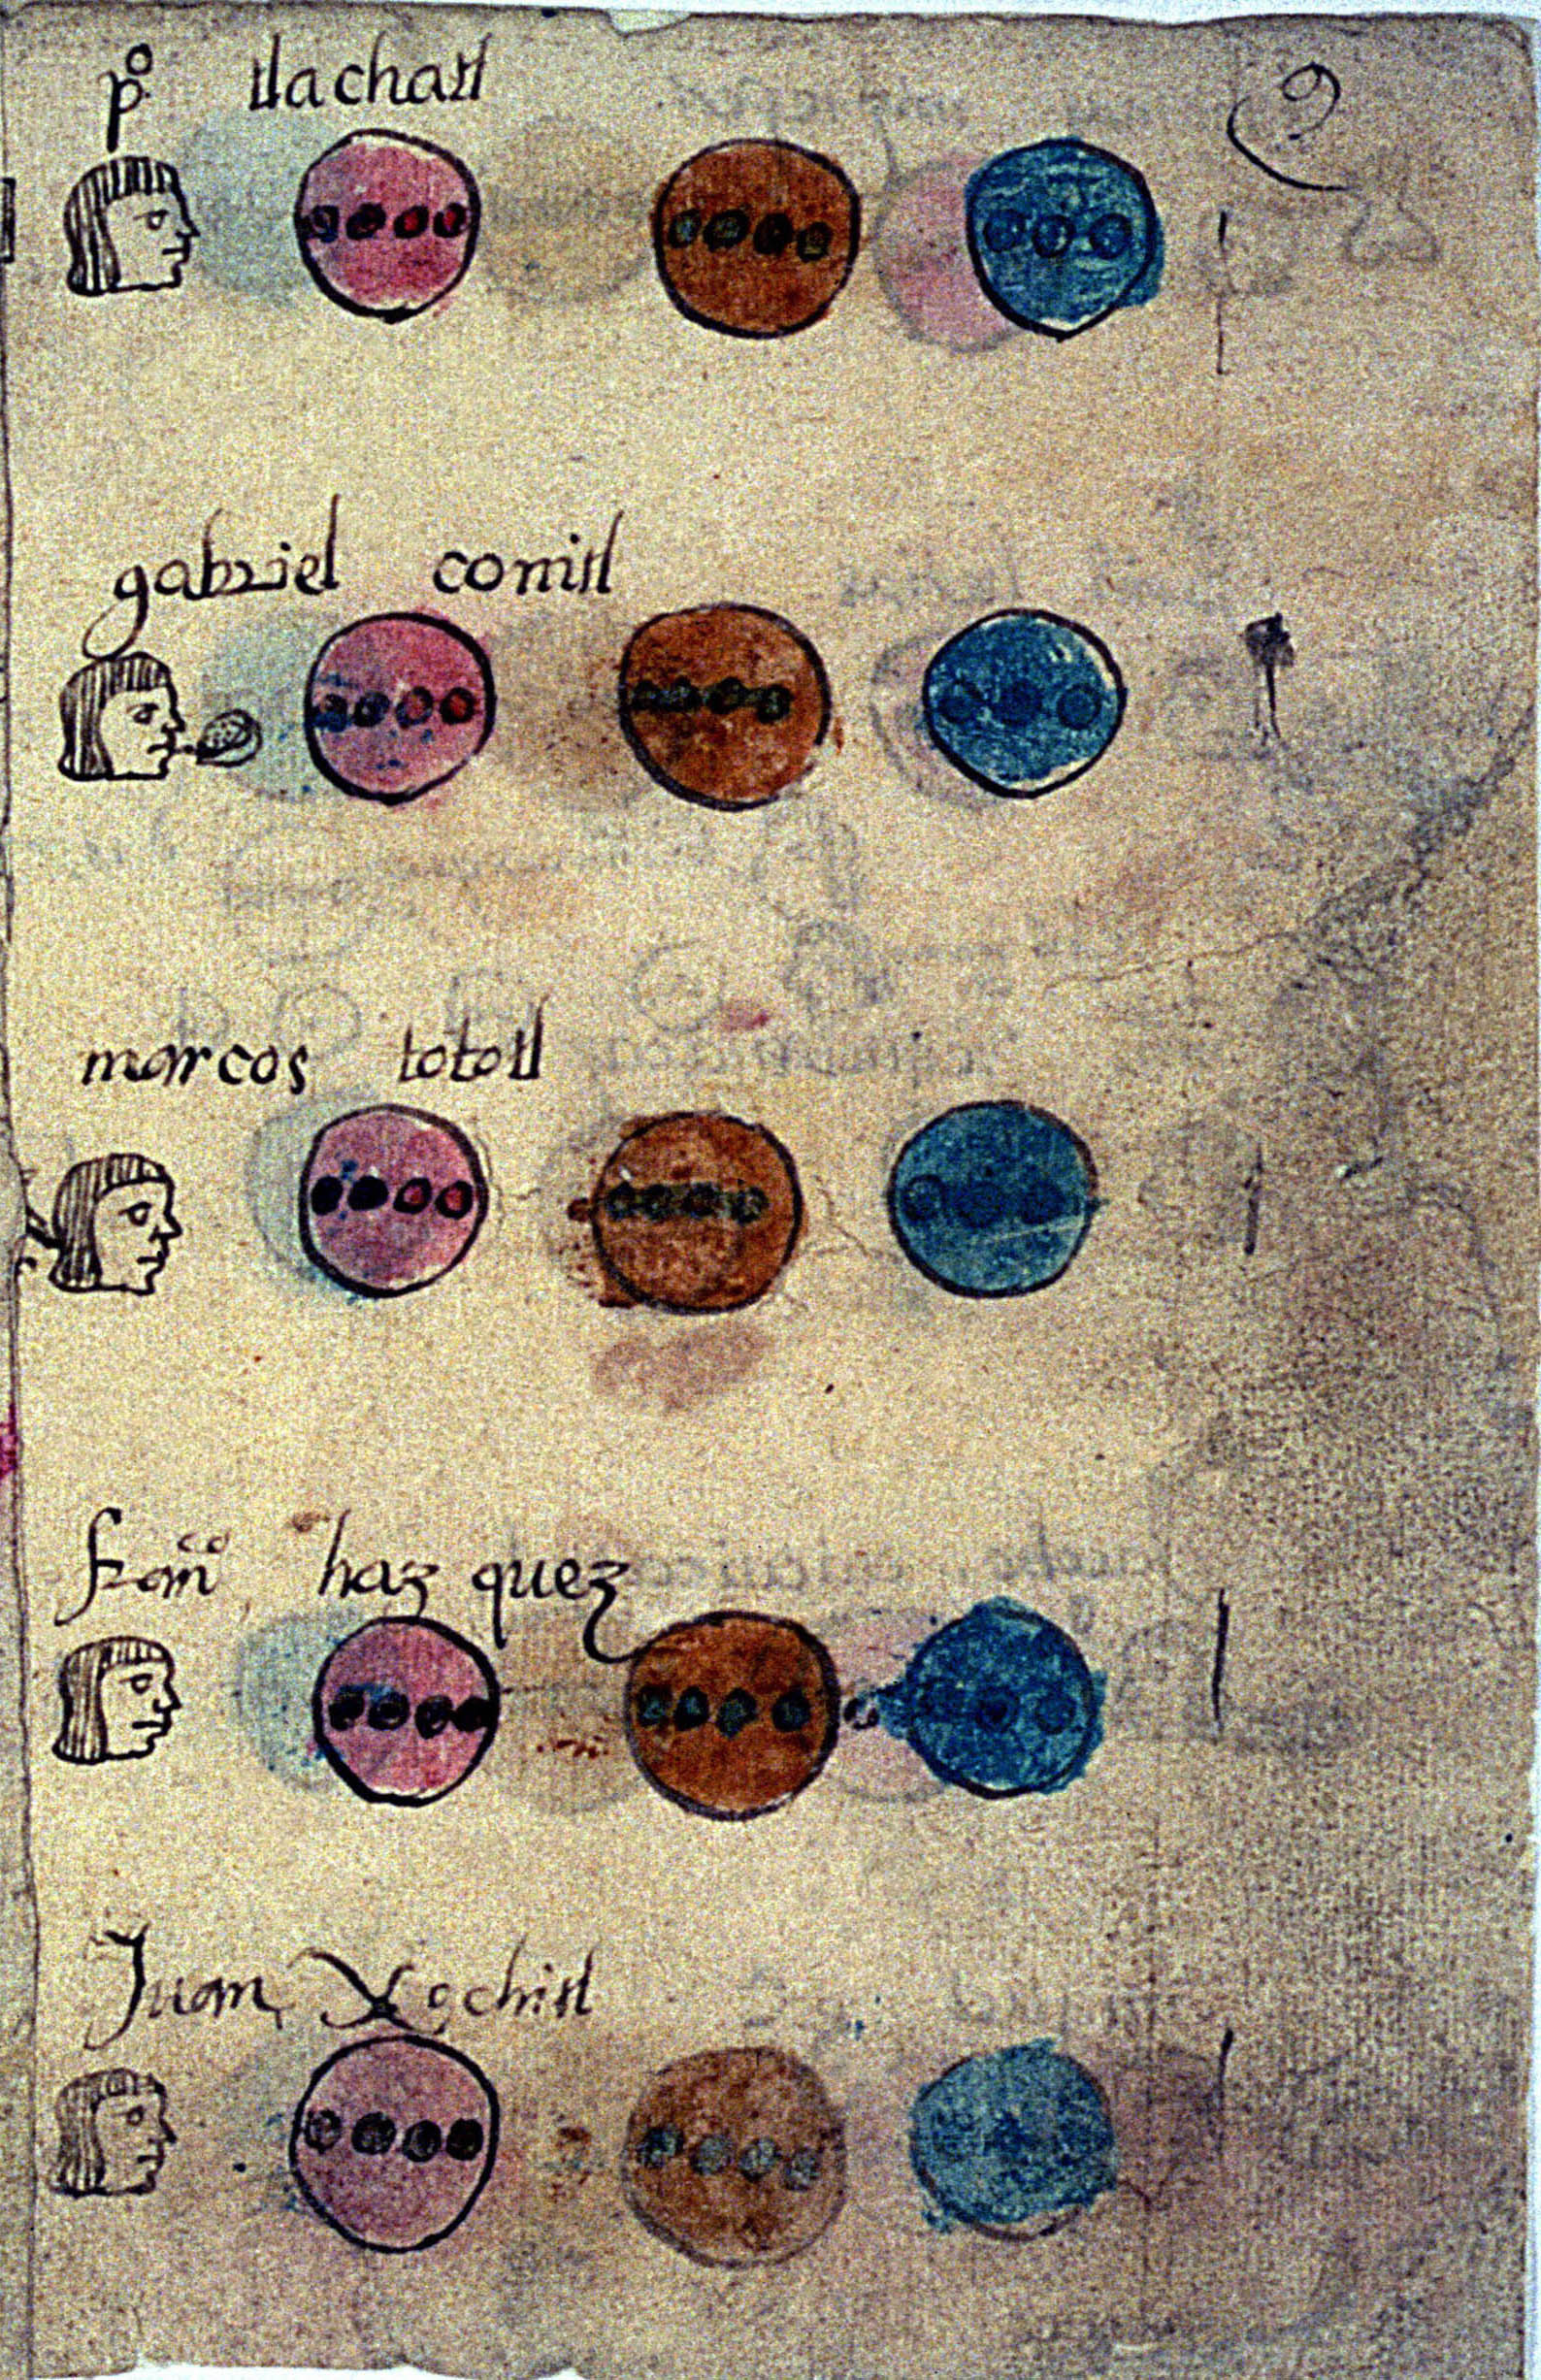 po tlachatl
gabriel comitl
marcos tototl
franco hazquez
Juan Xochitl